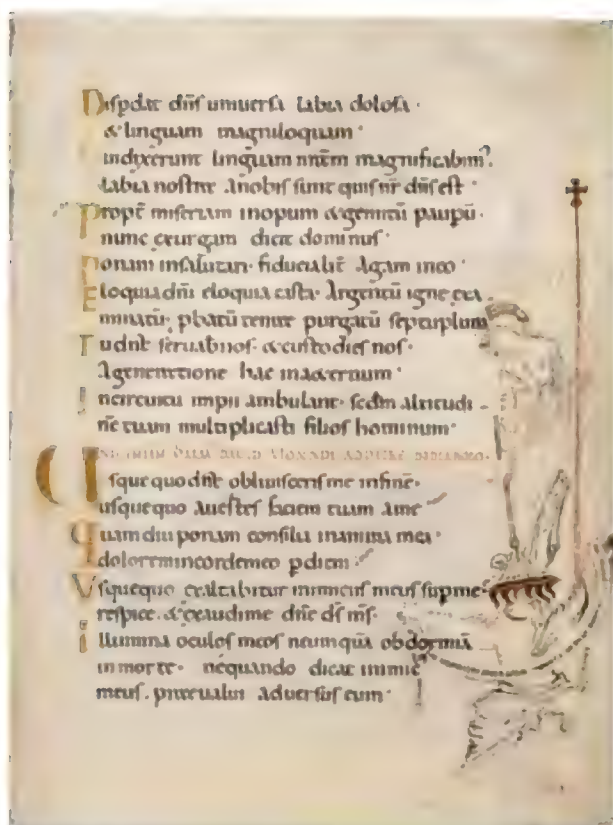 Dispdat dñs uniuersa labia dolosa ·
& linguam magniloquam ·
indixerunt linguam nr̃am magnificabim᾿.
labia nostra anobis sunt quis nr̃ dñs est ·
Propt̃ miseriam inopum & gemitũ paupũ ·
nunc exurgam dicit dominus ·
Ponam insalutari · fiducialit̃ agam ineo ·
Eloquia dñi eloquia casta · Argentũ igne exa
minatũ · pbatũ terrae purgatũ septuplum
Tu dñe seruabis nos · & custodies nos ·
Ageneratione hac in&ernum ·
Incircuitu impii ambulant · scdm altitudi
nẽ tuam multiplicasti filios hominum ·
Usque quo dñe obliuisceris me infinẽ ·
usquequo auertes faciem tuam ame
Quamdiu ponam consilia inanima mea ·
dolorem incordemeo p diem
Vsquequo exaltabitur inimicus meus supme ·
respice · & exaudime dñe ds̃ ms̃ ·
Illumina oculos meos neumquã obdormiã
inmorte · nequando dicat inimic᾿
meus · preualui aduersus eum ·